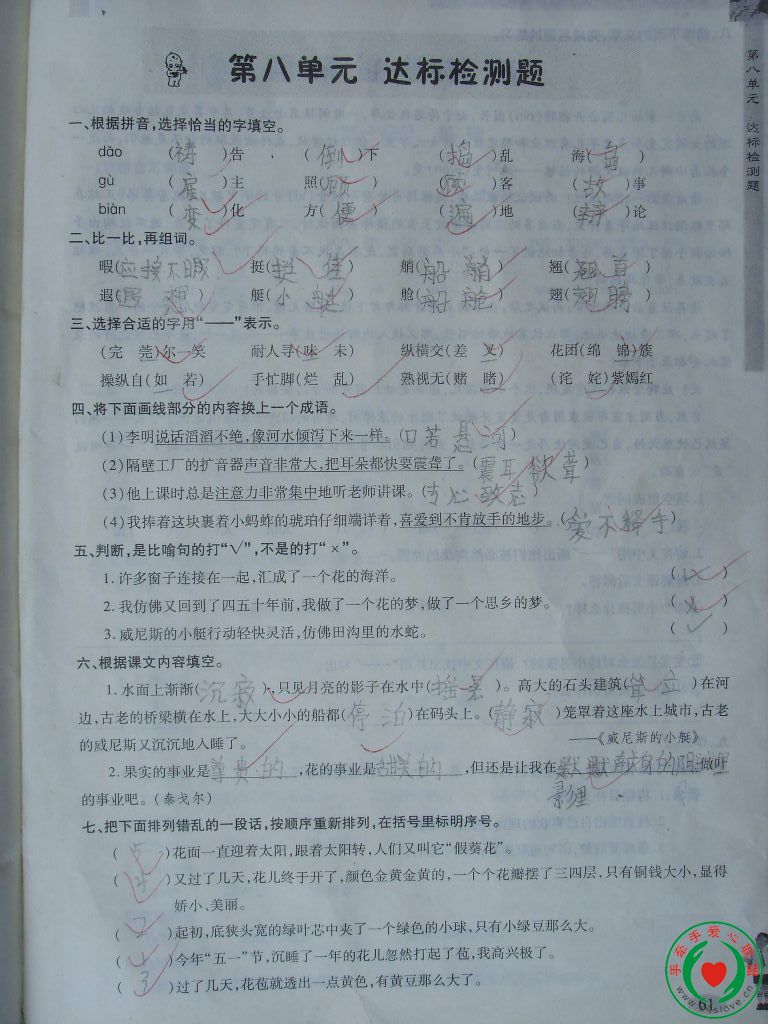 第八单元 达标检测题
一、根据拼音,选择恰当的字填空。
dǎo (祷)告 (倒)下 (捣)乱 海(岛)
gù (雇)主 照(顾) (顾)客 (故)事
biàn (变)化 方(便) (遍)地 (辩)论
二、比一比,再组词。
暇(应接不暇) 挺(挺佳) 艄(船艄) 翘(翘首)
遐(遐想) 艇(小艇) 舱(船舱) 翅(翅膀)
三、选择合适的字用“——”表示。
(完 莞)尔一笑 耐人寻(味 未) 纵横交(差 叉) 花团(绵 锦)簇
操纵自(如 若) 手忙脚(烂 乱) 熟视无(赌 睹) (诧 姹)紫嫣红
四、将下面画线部分的内容换上一个成语。
(1)李明说话滔滔不绝,像河水倾泻下来一样。(口若悬河)
(2)隔壁工厂的扩音器声音非常大,把耳朵都快要震聋了。(震耳欲聋)
(3)他上课时总是注意力非常集中地听老师讲课。(专心致志)
(4)我捧着这块裹着小蚂蚱的琥珀仔细端详着,喜爱到不肯放手的地步。(爱不释手)
五、判断,是比喻句的打“√”,不是的打“×”。
1.许多窗子连接在一起,汇成了一个花的海洋。 (√)
2.我仿佛又回到了四五十年前,我做了一个花的梦,做了一个思乡的梦。 (×)
3.威尼斯的小艇行动轻快灵活,仿佛田沟里的水蛇。 (√)
六、根据课文内容填空。
1.水面上渐渐(沉寂),只见月亮的影子在水中(摇晃)。高大的石头建筑(耸立)在河
边,古老的桥梁横在水上,大大小小的船都(停泊)在码头上。(静寂)笼罩着这座水上城市,古老
的威尼斯又沉沉地入睡了。 ——《威尼斯的小艇》
2.果实的事业是尊贵的,花的事业是甜美的,但还是让我在默默献身的阴影里做叶
的事业吧。(泰戈尔)
七、把下面排列错乱的一段话,按顺序重新排列,在括号里标明序号。
(5)花面一直迎着太阳,跟着太阳转,人们又叫它“假葵花”。
(4)又过了几天,花儿终于开了,颜色金黄金黄的,一个个花瓣摆了三四层,只有铜钱大小,显得
娇小、美丽。
(2)起初,底狭头宽的绿叶芯中夹了一个绿色的小球,只有小绿豆那么大。
(1)今年“五一”节,沉睡了一年的花儿忽然打起了苞,我高兴极了。
(3)过了几天,花苞就透出一点黄色,有黄豆那么大了。
第八单元 达标检测题
61
手牵手爱心联盟